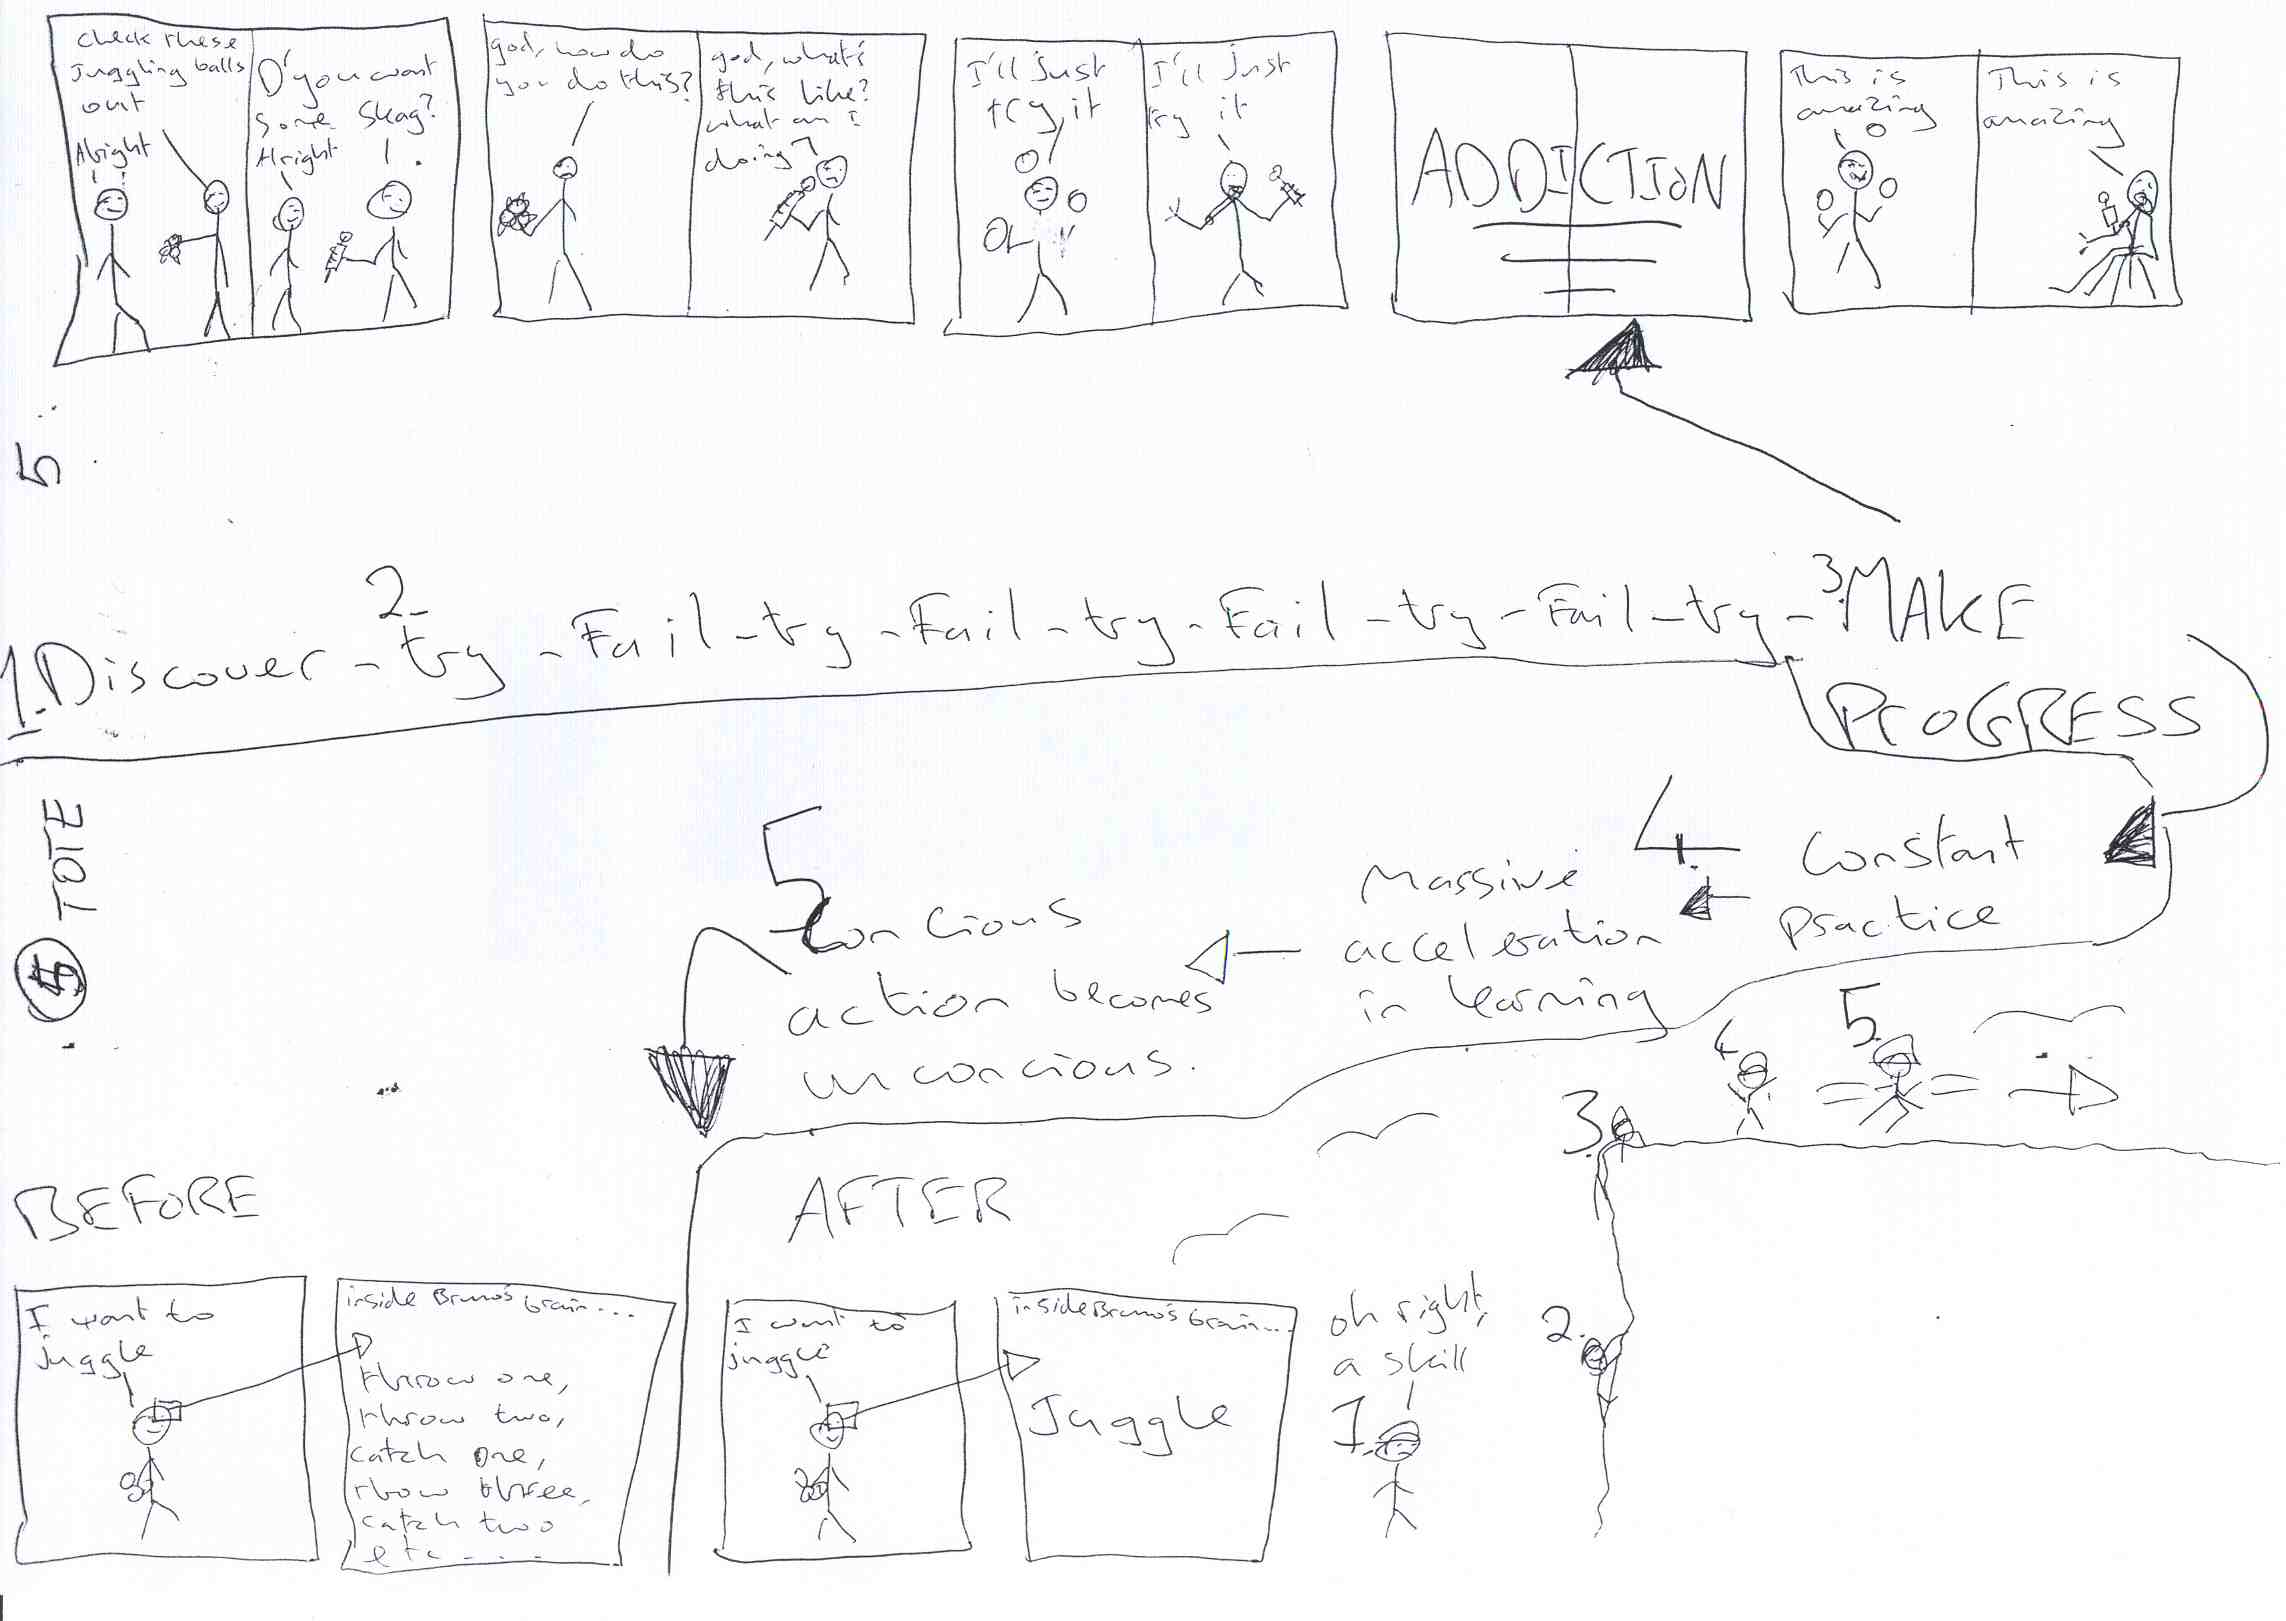 check these
Juggling balls
out
Alright
D'you want
some skag?
Alright
god, how do
you do this?
god, what's
this like?
what am I
doing?
I'll just
try it
I'll just
try it
ADDICTION
This is
amazing
This is
amazing
5
1. Discover - 2. try - Fail - try - Fail - try - Fail - try - Fail - try - 3. MAKE
PROGRESS
4. Constant
practice
Massive
acceleration
in learning
5
Concious
action becomes
unconcious.
TOTE
BEFORE
I want to
juggle
inside Bruno's brain...
throw one,
throw two,
catch one,
throw three,
catch two
etc....
AFTER
I want to
juggle
inside Bruno's brain...
Juggle
oh right,
a skill
1.
2.
3.
4
5